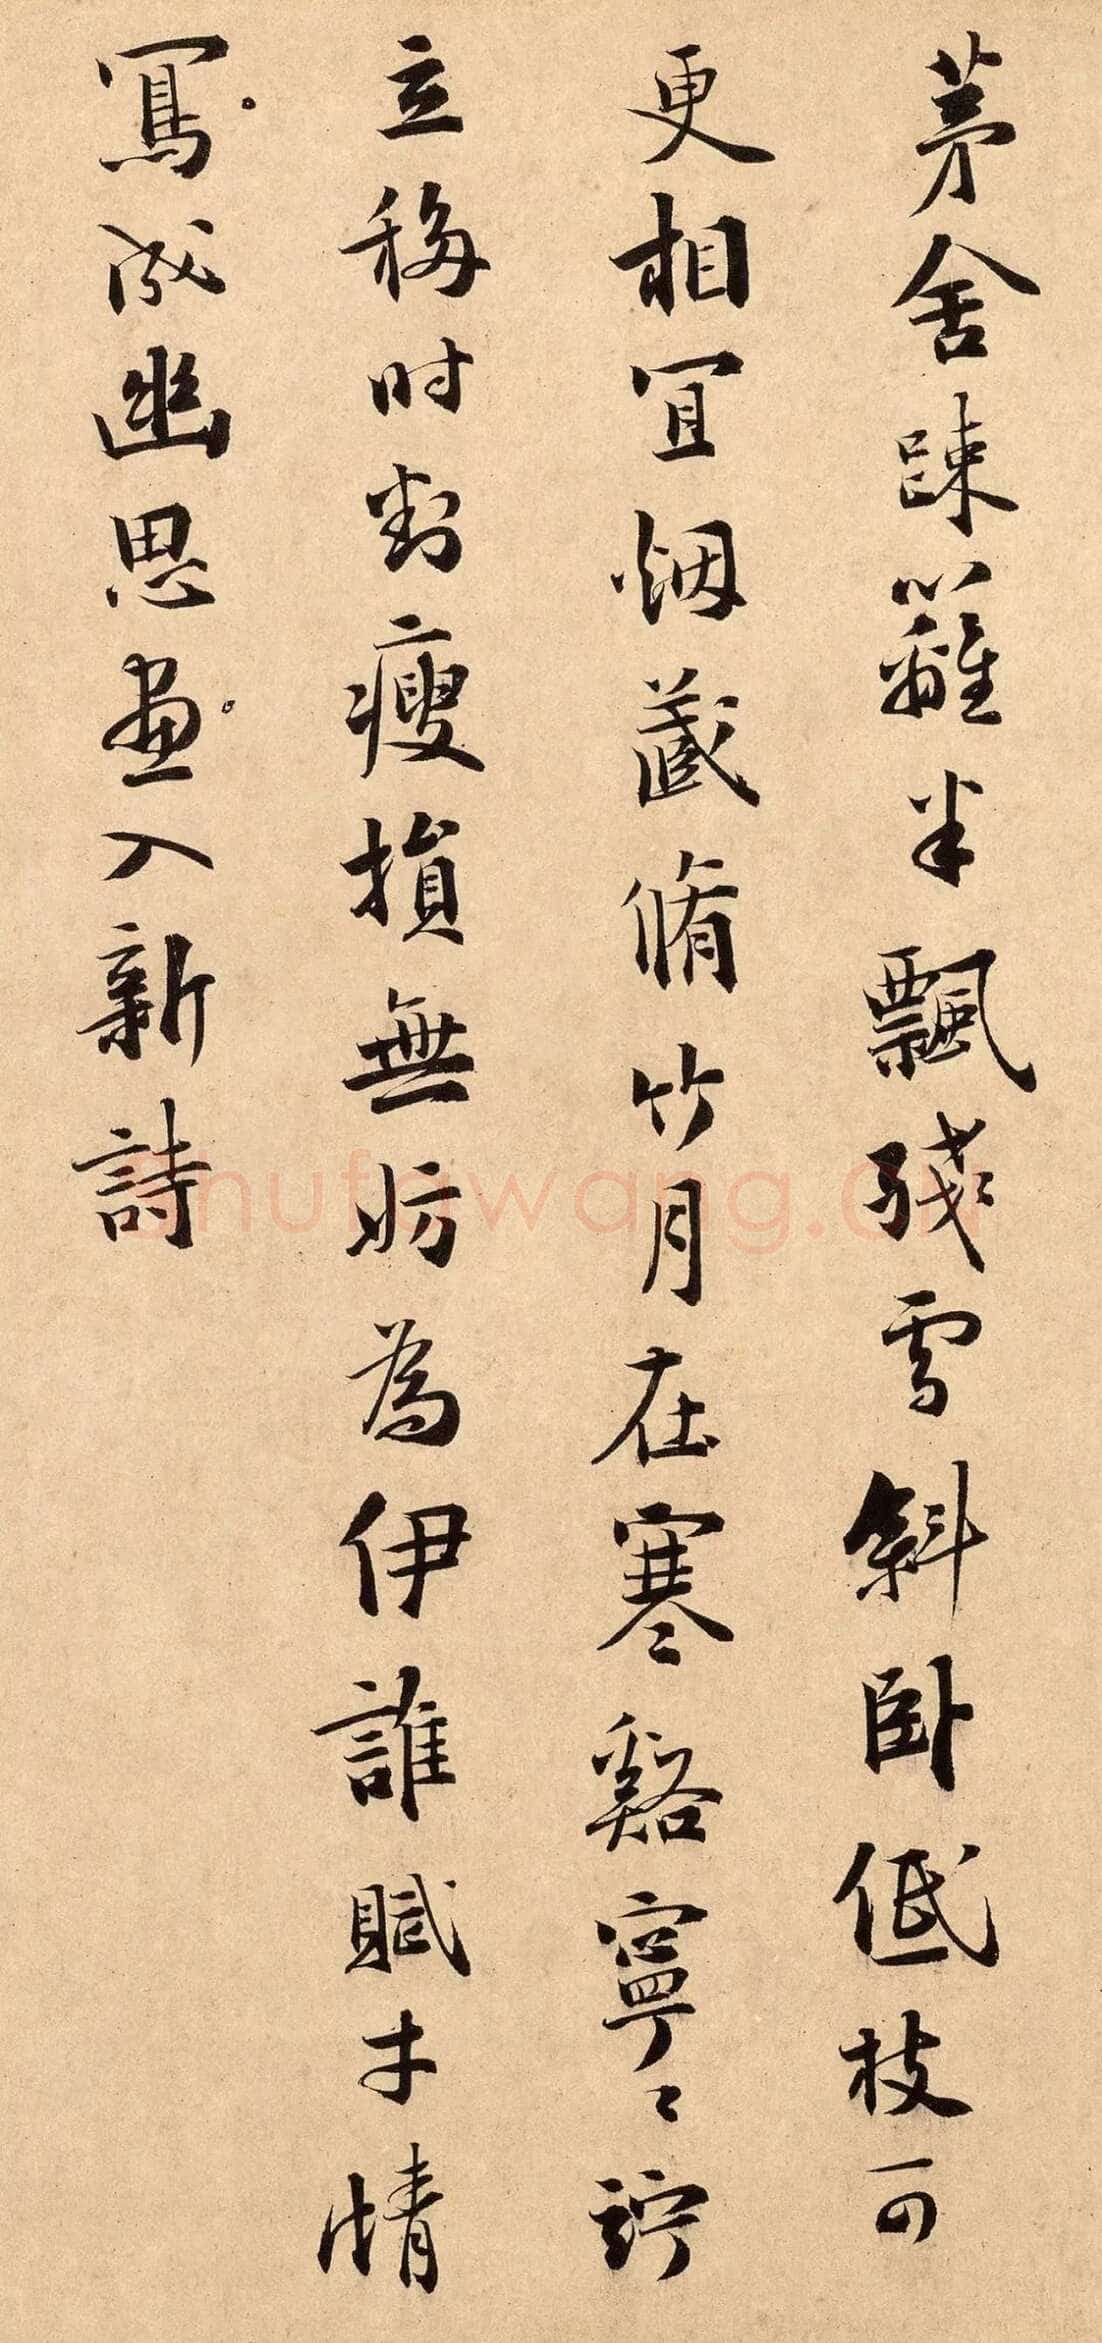 茅舍踈籬半飄殘雪斜卧低枝可
更相宜烟蔵脩竹月在寒谿寧〻竚
立移时判瘦損無妨為伊誰賦才情
寫成幽思畫入新詩
Shufawang.cn